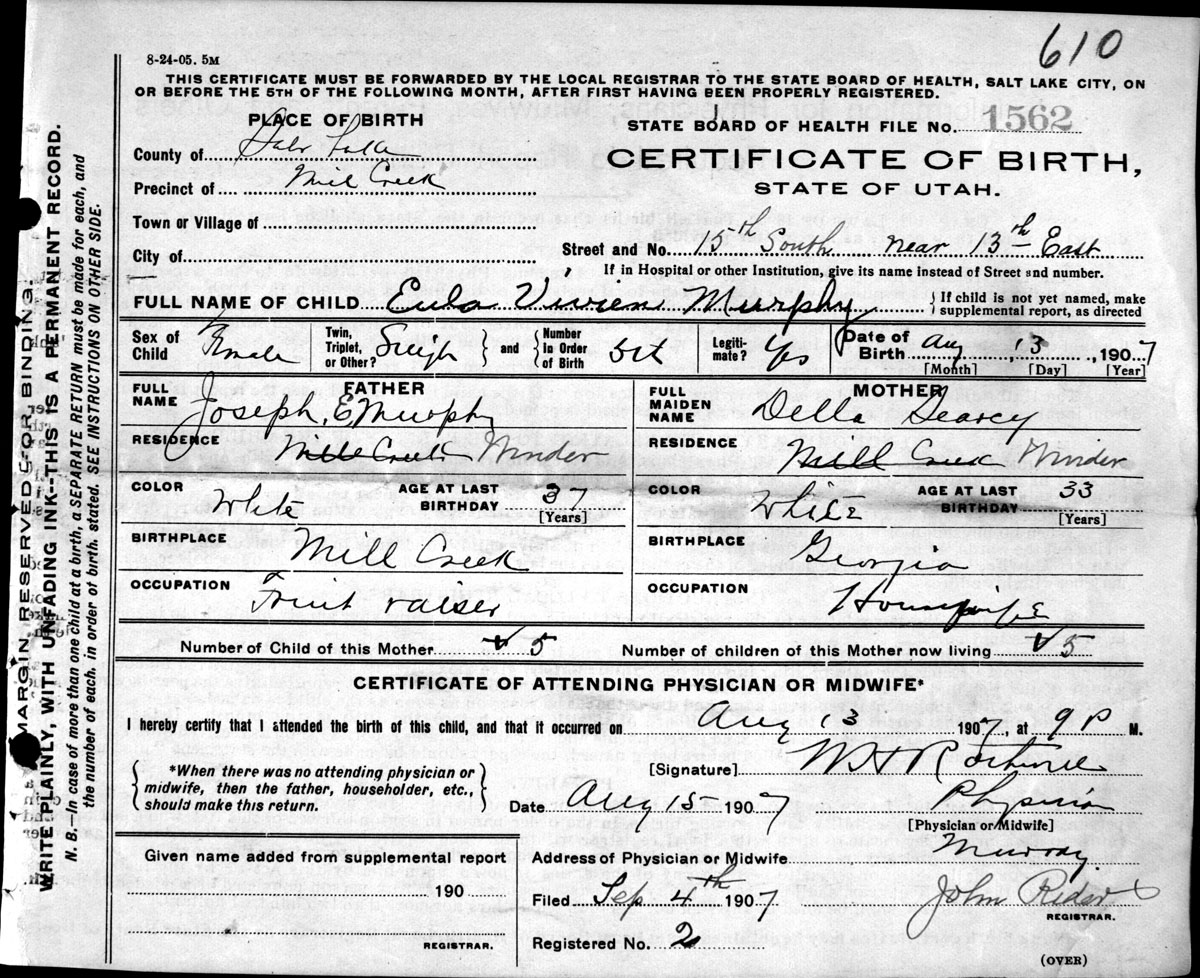 610
8-24-05. 5M
THIS CERTIFICATE MUST BE FORWARDED BY THE LOCAL REGISTRAR TO THE STATE BOARD OF HEALTH, SALT LAKE CITY, ON
OR BEFORE THE 5TH OF THE FOLLOWING MONTH, AFTER FIRST HAVING BEEN PROPERLY REGISTERED.
PLACE OF BIRTH
STATE BOARD OF HEALTH FILE No. 1562
County of Salt Lake
CERTIFICATE OF BIRTH,
Precinct of Mill Creek
STATE OF UTAH.
Town or Village of
Street and No. 15th South near 13th East
City of
If in Hospital or other Institution, give its name instead of Street and number.
FULL NAME OF CHILD Eula Vivien Murphy { If child is not yet named, make
supplemental report, as directed
Sex of Child Female Twin, Triplet, or Other? Single } and { Number In Order of Birth 5th Legiti- mate? Yes Date of Birth Aug 13, 1907
[Month] [Day] [Year]
FATHER
FULL NAME Joseph E Murphy
RESIDENCE Mill Creek Winder
COLOR White AGE AT LAST BIRTHDAY 37
[Years]
BIRTHPLACE Mill Creek
OCCUPATION Fruit raiser
MOTHER
FULL MAIDEN NAME Della Searcy
RESIDENCE Mill Creek Winder
COLOR White AGE AT LAST BIRTHDAY 33
[Years]
BIRTHPLACE Georgia
OCCUPATION Housewife
Number of Child of this Mother 5 Number of children of this Mother now living 5
CERTIFICATE OF ATTENDING PHYSICIAN OR MIDWIFE*
I hereby certify that I attended the birth of this child, and that it occurred on Aug 13 1907, at 9 P M.
{ *When there was no attending physician or
midwife, then the father, householder, etc.,
should make this return. }
[Signature] W H
Date Aug 15 1907 Physician
[Physician or Midwife]
Given name added from supplemental report
190
REGISTRAR.
Address of Physician or Midwife Murray
Filed Sep 4th 1907 John
REGISTRAR.
Registered No. 2
(OVER)
MARGIN RESERVED FOR BINDING.
WRITE PLAINLY, WITH UNFADING INK--THIS IS A PERMANENT RECORD.
N. B.—In case of more than one child at a birth, a SEPARATE RETURN must be made for each, and
the number of each, in order of birth, stated. SEE INSTRUCTIONS ON OTHER SIDE.